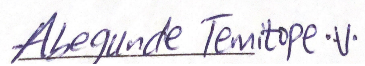 Alegunde Temitope .V.